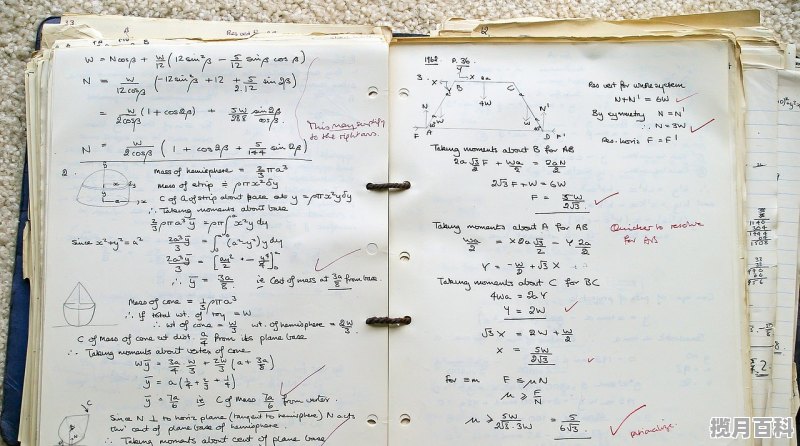 33
W = N cos β + W/12 (12 sin²β − 5/12 sin β cos β)
N = W/12cosβ (−12 sin²β + 12 + 5/2.12 sin 2β)
= W/2cosβ (1 + cos 2β) + 5W/288 sin 2β/cos β.
This may simplify
to the right ans.
N = W/2cosβ (1 + cos 2β + 5/144 sin 2β)
2.
Mass of hemisphere = 2/3 ρπa³
Mass of strip = ρπx²δy
C of G of strip about base as y = ρπx²yδy
∴ Taking moments about base
2/3 ρπa³ȳ = ρπ∫x²y dy
since x²+y² = a²
2a³ȳ/3 = ∫(a²−y²)y dy
2a³ȳ/3 = [ay²/2 − y⁴/4]
∴ ȳ = 3a/8 ie Cent of mass at 3a/8 from base.
Mass of cone = 1/3 ρπa³
∴ If total wt. of toy = W
∴ wt of cone = W/3 wt. of hemisphere = 2W/3
C of Mass of cone at dist. a/4 from its plane base
∴ Taking moments about vertex of cone
Wȳ = 3a/4 W/3 + 2W/3 (a + 3a/8)
ȳ = a(1/4 + 2/3 + 1/4)
ȳ = 7a/6 ie C of Mass 7a/6 from vertex.
Since N ⊥ to horiz plane (tangent to hemisphere) N acts
thr' cent of plane base of hemisphere.
∴ Taking moments about cent of plane base
1962 P. 36
4
3.
X
B
C
4W
N
N'
W
W
F
A
D
F'
Res vert for whole system
N+N' = 6W
By symmetry N = N'
∴ N = 3W
Res. horiz F = F'
Taking moments about B for AB
2a√3/2 F + Wa/2 = 2aN/2
2√3F + W = 6W
F = 5W/2√3
Taking moments about A for AB
Quicker to resolve
for AB
Wa/2 = X2a√3/2 − Y 2a/2
Y = −W/2 + √3 X
Taking moments about C for BC
4Wa = 2aY
Y = 2W
√3X = 2W + W/2
X = 5W/2√3
for eqm F ≤ μN
μ ≥ F/N
μ ≥ 5W/2√3·3W = 5/6√3
rationalize.
揽月百科